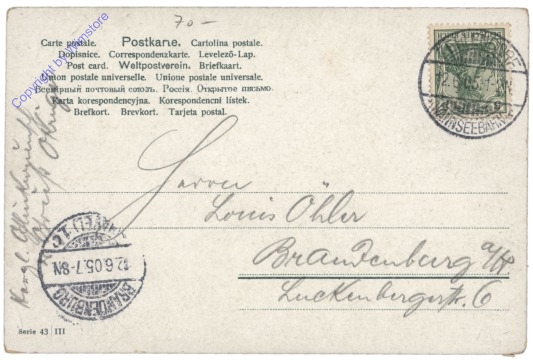 70-
Carte postale. Postkarte. Cartolina postale.
Dopisnice. Correspondenzkarte. Levelező-Lap.
Post card. Weltpostverein. Briefkaart.
Union postale universelle. Unione postale universale.
Всемірный почтовый союзъ. Россія. Открытое письмо.
Karta korespondencyjna. Korespondenčni listek.
Brefkort. Brevkort. Tarjeta postal.
Copyright by
Herrn
Louis Öhler
Brandenburg a/H
Luckenbergerstr. 6
BRANDENBURG
(HAVEL) 1
12.6.05.7-8N
WANNSEEBAHN
Serie 43 III